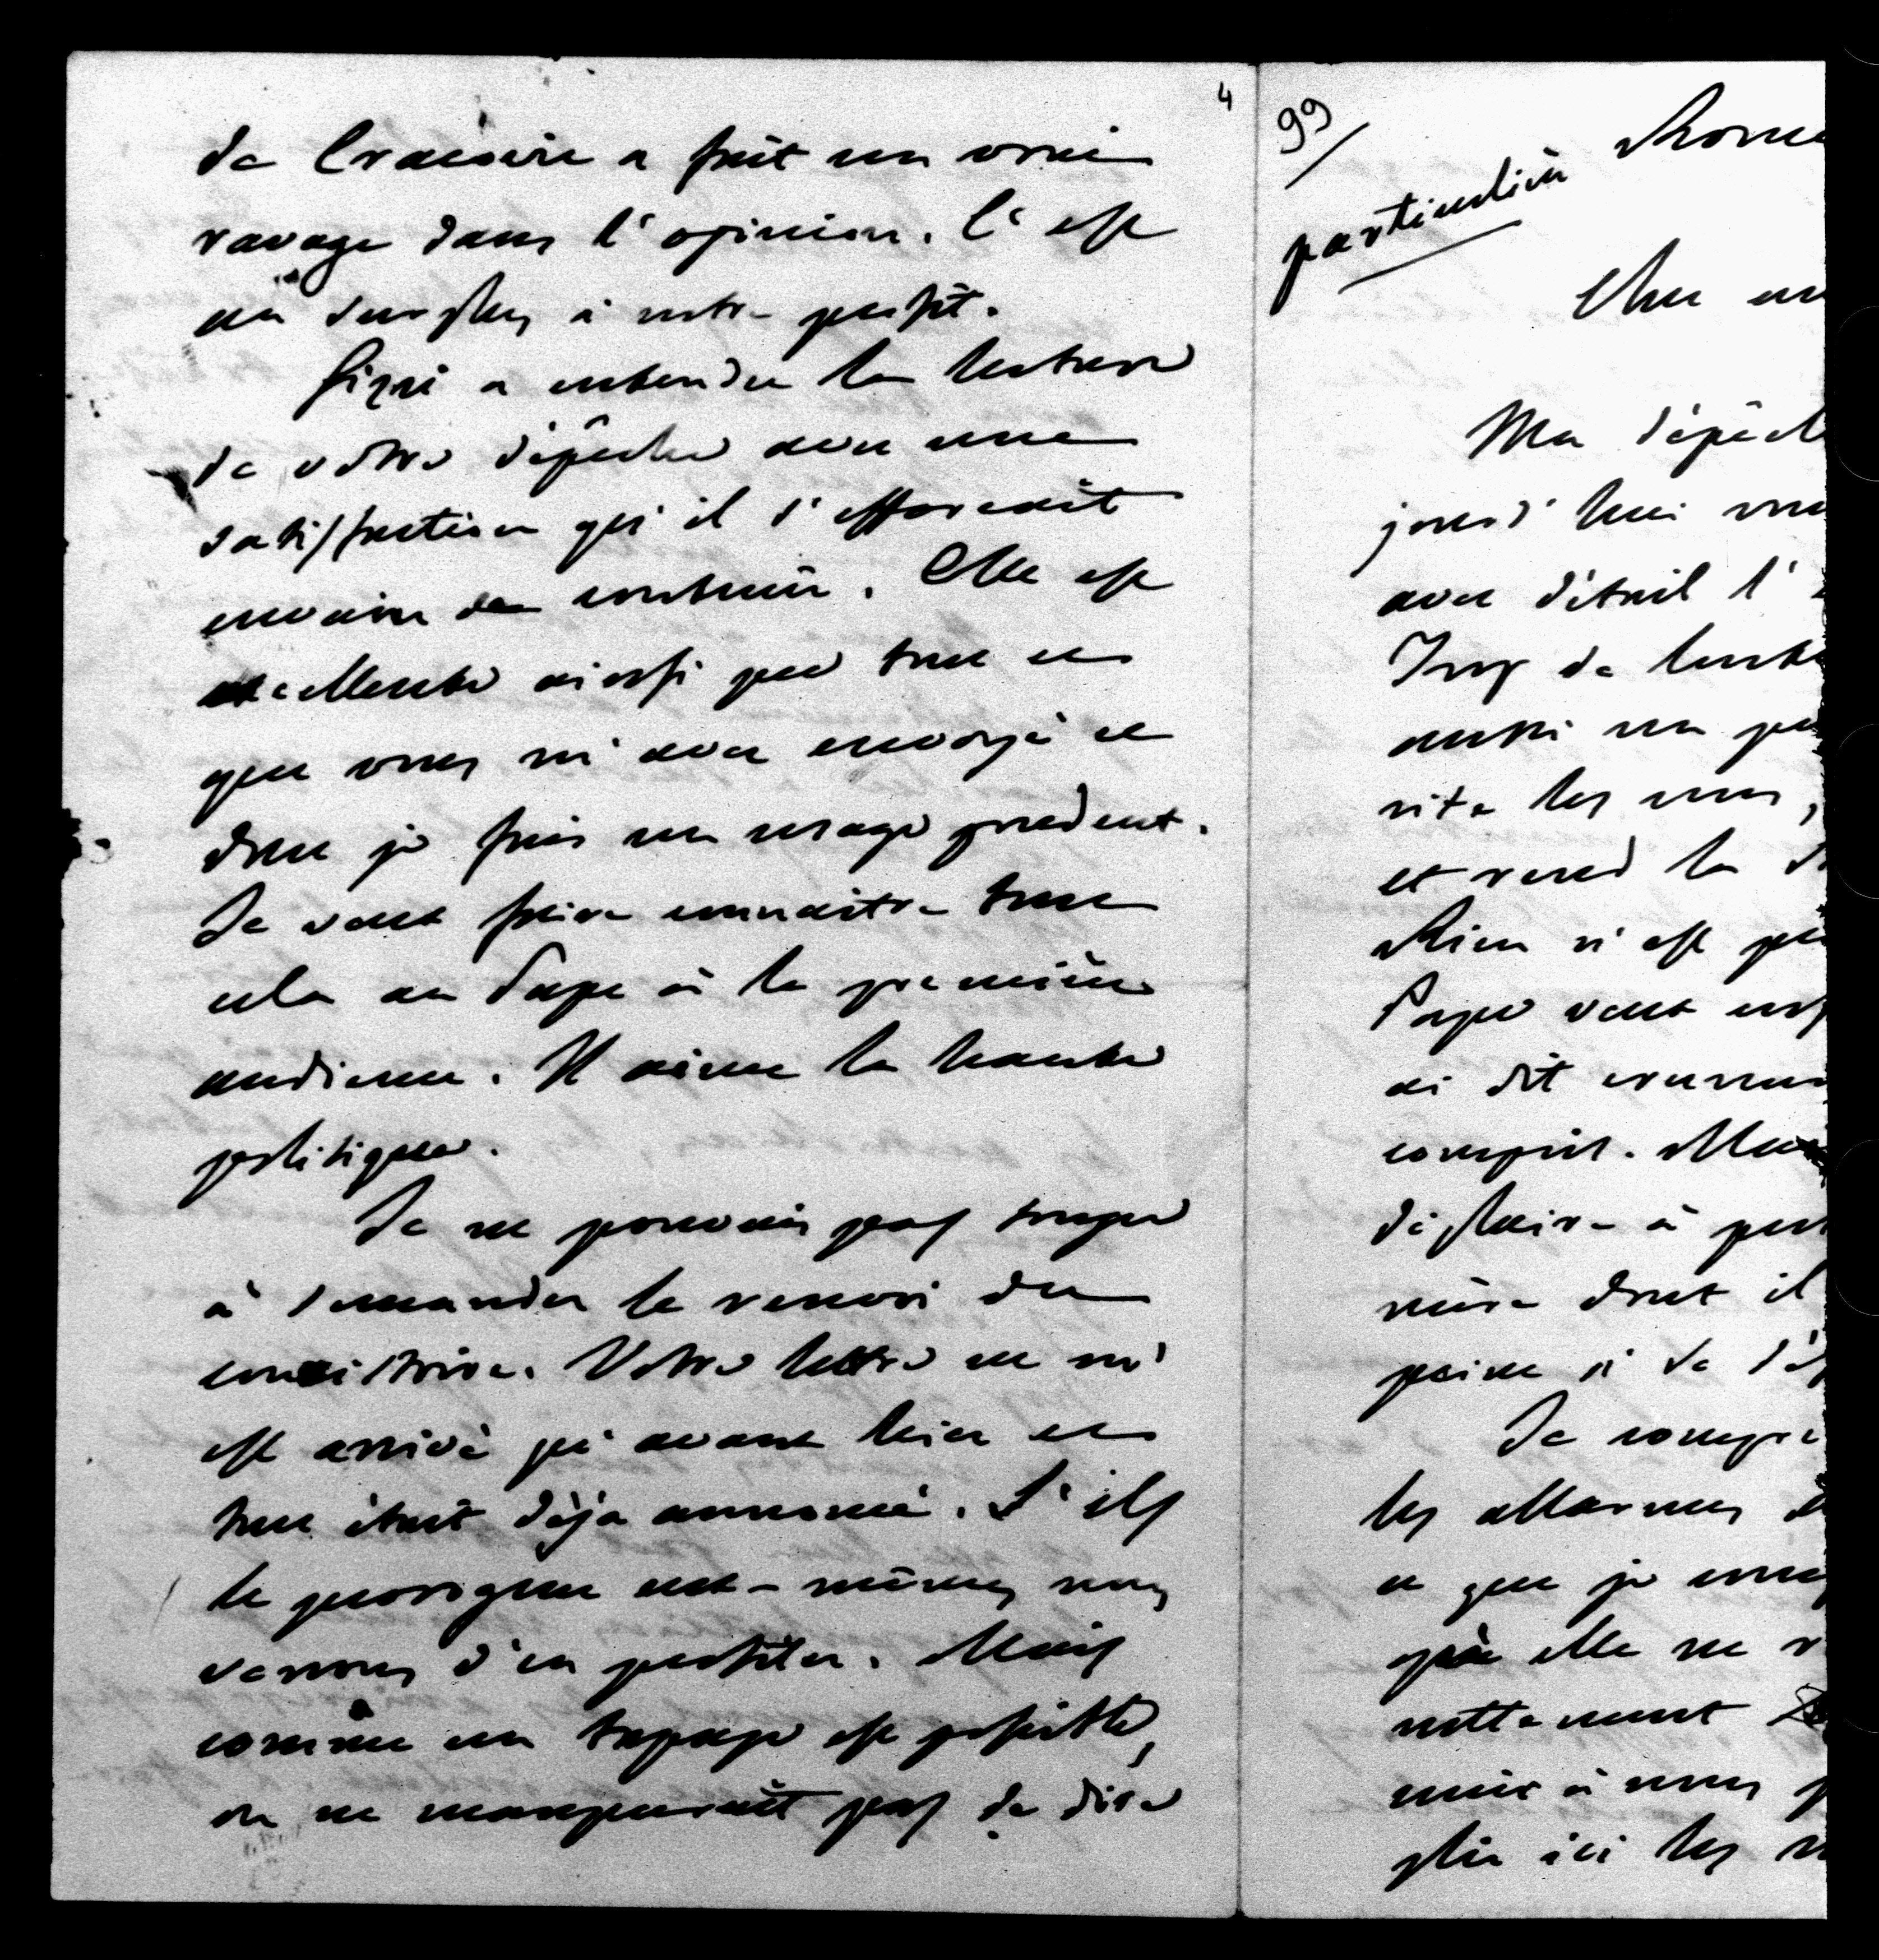 4
de Cracovie a fait un vrai
ravage dans l'opinion. C'est
du surplus à notre profit.
Gizzi a entendu la lecture
de votre dépêche avec une
satisfaction qu'il s'efforcait
envain de contenir. Elle est
excellente ainsi que tout ce
que vous m'avez envoyé et
dont je fais un usage prudent.
Je veux faire connaitre tout
cela au Pape à la première
audience. Il aime la haute
politique.
Je ne pouvais pas songer
à demander le renvoi du
consistoire. Votre lettre ne m'
est arrivé qu'avant hier et
tout était déjà annoncé. S'ils
le prorogent eux-mêmes nous
verrons d'en profiter. Mais
comme un tapage est possible,
on ne manquerait pas de dire
99
particulière Rome
Cher
Ma dépêch
jourd'hui vou
avec détail l'
Trop de lente
aussi un peu
rite les uns,
et rend la
Rien n'est plu
Pape veut
ai dit
compris. Mais
déplaire à per
nière dont il
peine si de
Je compre
les allarmes
et que je
qu'elle ne
nettement
nuir à nous
plie ici les